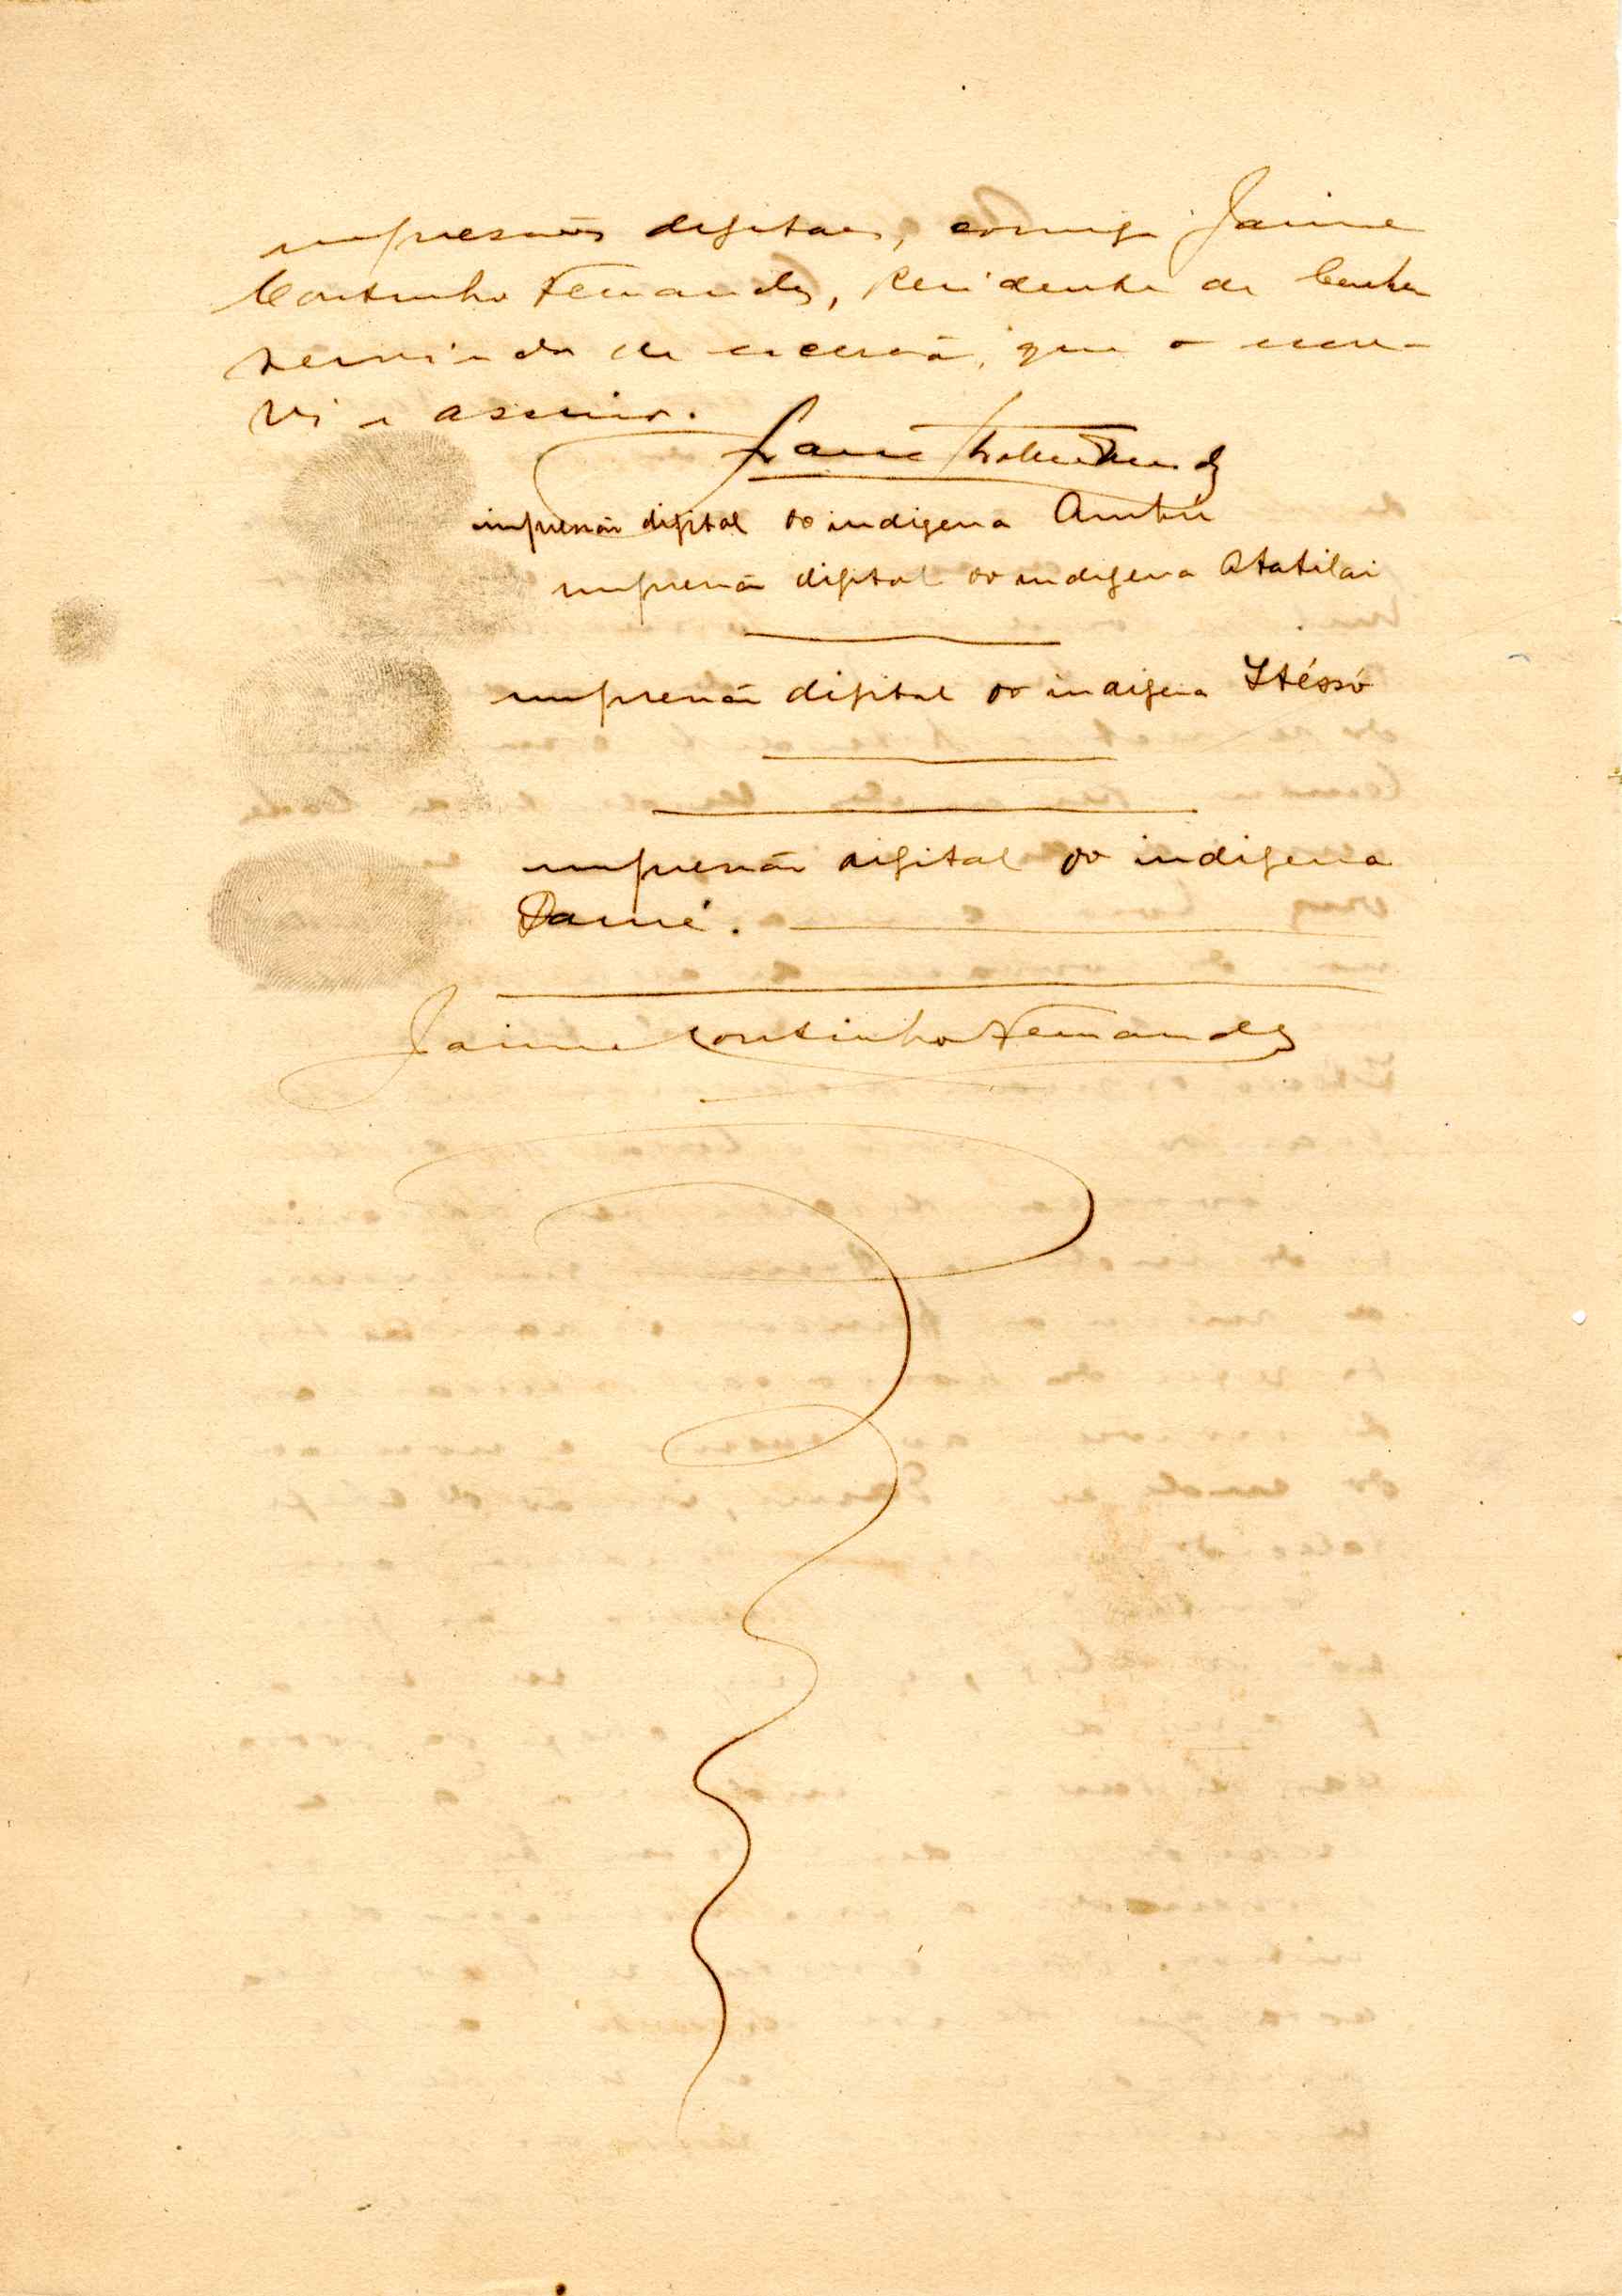 impressões digitaes, comigo Jaime
Coutinho Fernandes, Residente de Cacheu
servindo de escrivão, que o escre-
vi e assino.
impressão digital do indigena Ambú
impressão digital do indigena Atatilai
impressão digital do indigena Itéssó
impressão digital do indigena
Damé.
Jaime Coutinho Fernandes